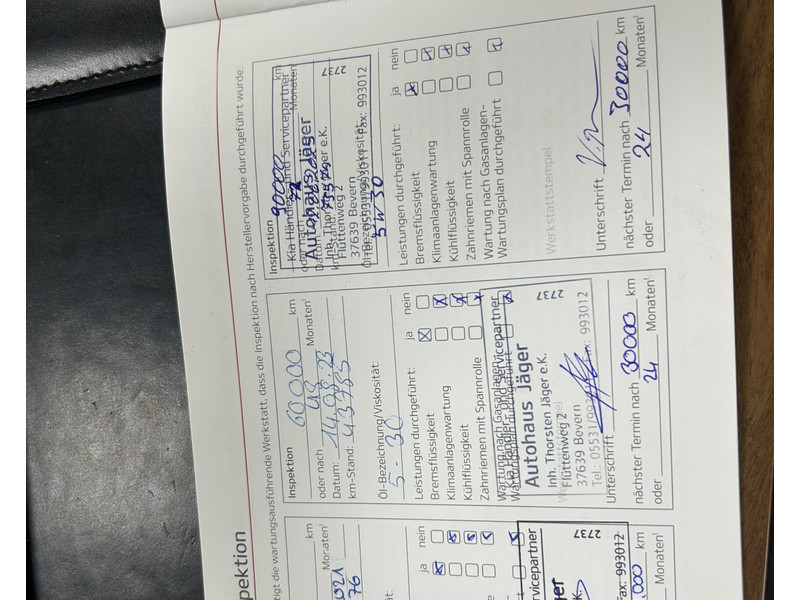 pektion
tigt die wartungsausführende Werkstatt, dass die Inspektion nach Herstellervorgabe durchgeführt wurde.
km
Monaten¹
2021
76
ät:
ja nein
rvicepartner
2737
Fax: 993012
000 km
Monaten¹
Inspektion 60000 km
oder nach 48 Monaten¹
Datum: 14.08.23
km-Stand: 43785
Öl-Bezeichnung/Viskosität:
5-30
Leistungen durchgeführt: ja nein
Bremsflüssigkeit
Klimaanlagenwartung
Kühlflüssigkeit
Zahnriemen mit Spannrolle
Wartung nach Gasanlagen-
Wartungsplan durchgeführt
Kia Händler- und Servicepartner
Autohaus Jäger
Inh. Thorsten Jäger e.K. 2737
Flüttenweg 2
37639 Bevern
Tel.: 05531/993011 Fax: 993012
Unterschrift
nächster Termin nach 30000 km
oder 24 Monaten¹
Inspektion 90000 km
Kia Händler- und Servicepartner
oder nach 72 Monaten¹
Autohaus Jäger
Datum:
Inh. Thorsten Jäger e.K. 2737
km-Stand:
Flüttenweg 2
37639 Bevern
Öl-Bezeichnung/Viskosität:
05531/993011 Fax: 993012
5W30
Leistungen durchgeführt: ja nein
Bremsflüssigkeit
Klimaanlagenwartung
Kühlflüssigkeit
Zahnriemen mit Spannrolle
Wartung nach Gasanlagen-
Wartungsplan durchgeführt
Werkstattstempel
Unterschrift
nächster Termin nach 30000 km
oder 24 Monaten¹